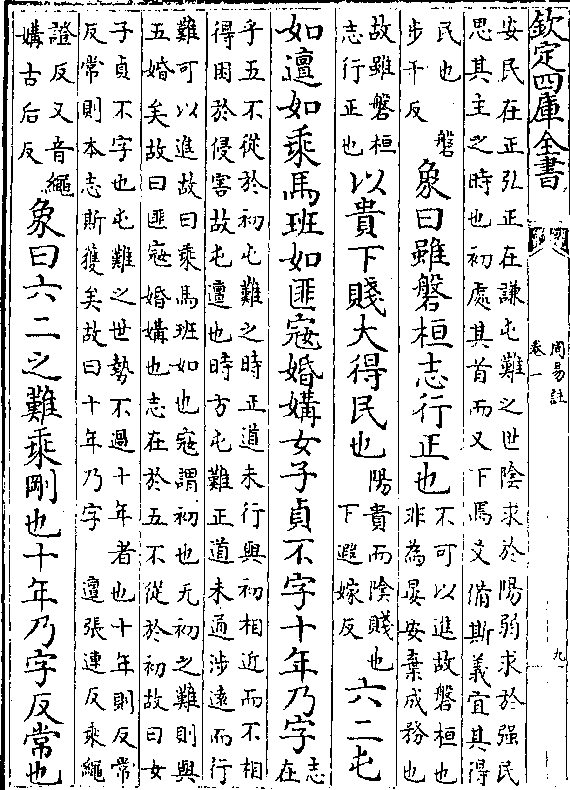 欽定四庫全書 周易註 卷一 九
安民在正弘正在謙屯難之世陰求於陽弱求於强民
思其主之時也初處其首而又下焉爻備斯義宜其得
民也 磐
步干反
象曰雖磐桓志行正也
不可以進故磐桓也
非為晏安棄成務也
故雖磐桓
志行正也
以貴下賤大得民也
陽貴而陰賤也
下遐嫁反
六二屯
如邅如乘馬班如匪寇婚媾女子貞不字十年乃字
志
在
乎五不從於初屯難之時正道未行與初相近而不相
得困於侵害故屯邅也時方屯難正道未通涉遠而行
難可以進故曰乘馬班如也寇謂初也无初之難則與
五婚矣故曰匪寇婚媾也志在於五不從於初故曰女
子貞不字也屯難之世勢不過十年者也十年則反常
反常則本志斯獲矣故曰十年乃字 邅張連反乘繩
證反又音繩
媾古后反
象曰六二之難乘剛也十年乃字反常也